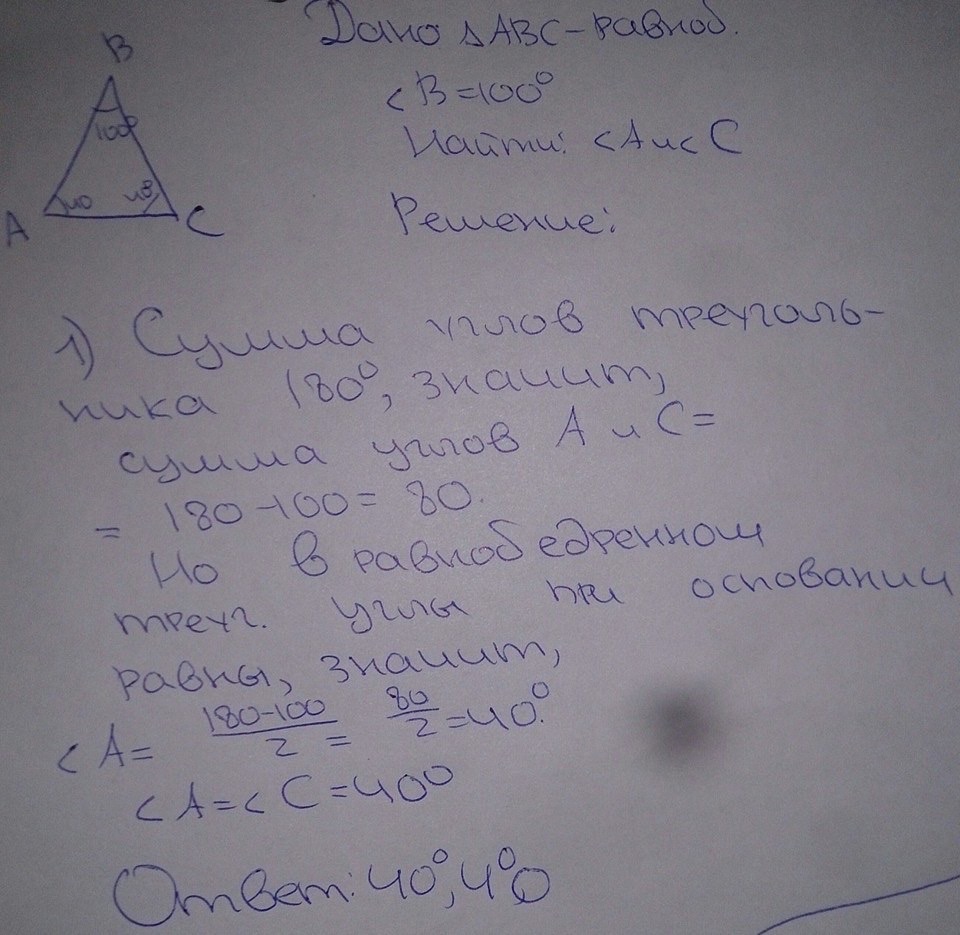 Дано △ABC-равноб.
B
<B=100°
100°
Найти: <A и <C
40 40
A C
Решение:
1) Сумма углов треуголь-
ника 180°, значит,
сумма углов A и C=
= 180-100= 80.
Но в равнобедренном
треуг. углы при основании
равны, значит,
<A= 180-100/2 = 80/2 =40°.
<A=<C=40°
Ответ: 40°, 40°